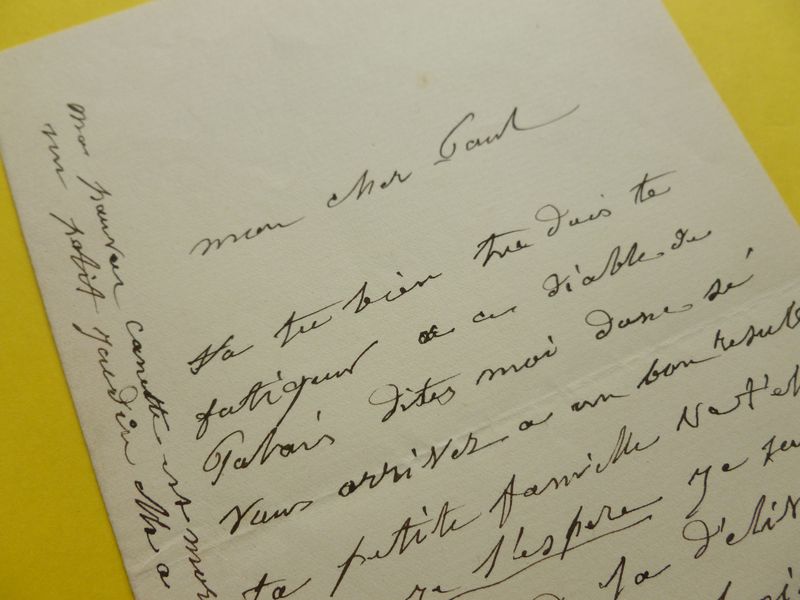 mon cher Paul
Va tu bien tu dois te
fatiguer a ce diable de
Palais dites moi donc sé
vous arrivez a un bon resul
ta petite famille Va t'el
l'espere je
d'eli
Ma pauvre canette est mor
un petit jardin